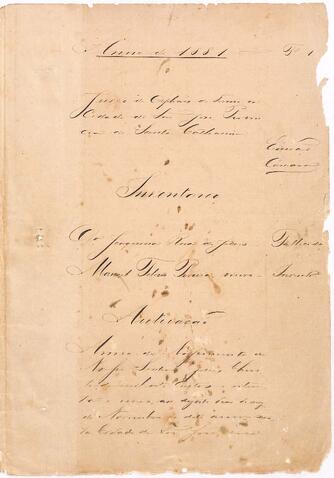 Anno de 1881 F 1
Juizo de Orphãos do Termo da
Cidade de São José Provin
cia de Santa Catharina
Escrivão
Camara
Inventario
D. Joaquina Rosa de Jesus Fallecida
Manoel Pereira Invent
Autuação
Anno do Nascimento de
Nosso Senhor Jesus Chris
to de mil oito centos e oiten
ta e um aos dias
de Novembro do dito anno nes
ta Cidade de São José